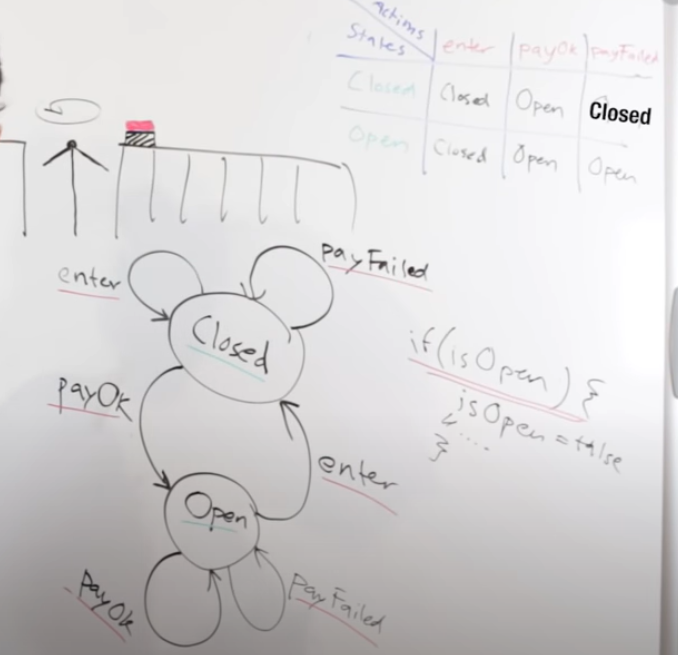 Actions
States
enter
payOk
payFailed
Closed
Closed
Open
Closed
Open
Closed
Open
Open
enter
payFailed
Closed
payOk
enter
Open
payOk
PayFailed
if(isOpen) {
isOpen = false
....
}